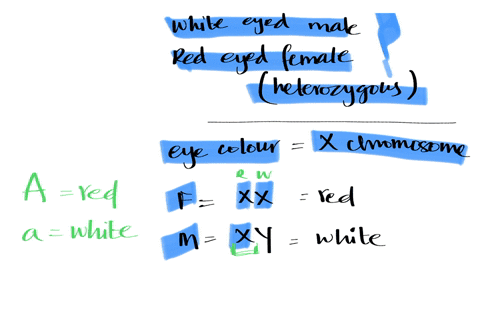 White eyed male
Red eyed female
(heterozygous)
eye colour = X chromosome
A = red
a = white
R w
F = XX = red
M = XY = white